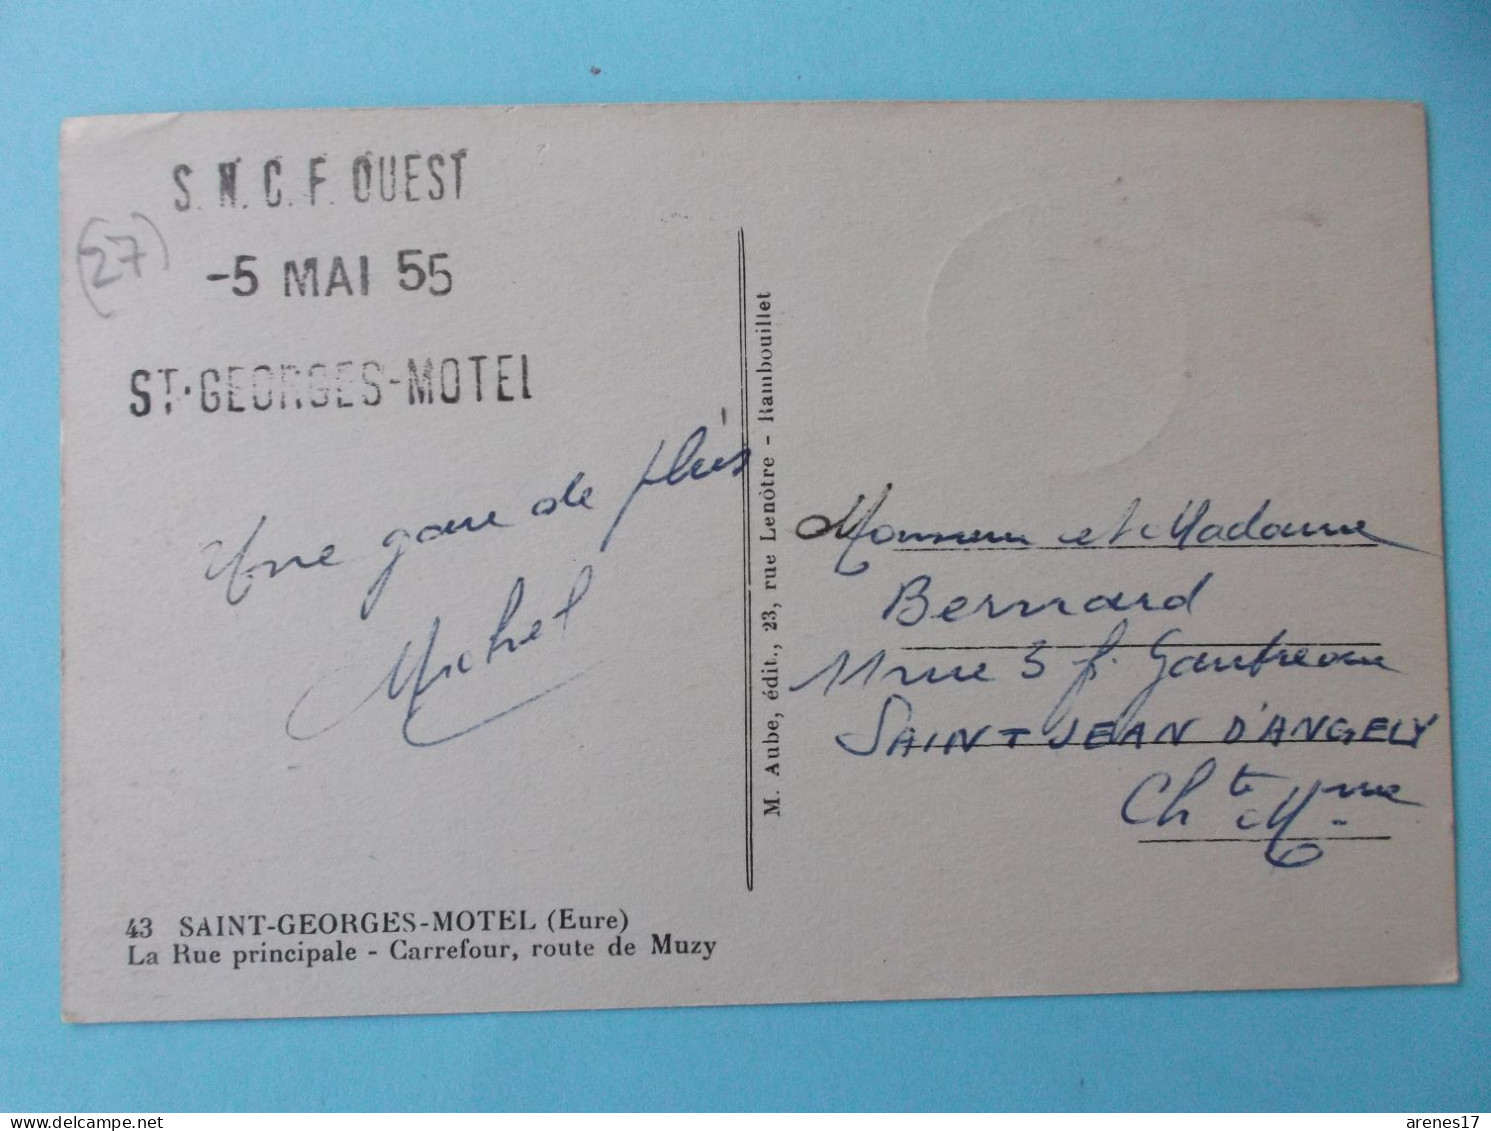 S.N.C.F. OUEST
(27)
-5 MAI 55
ST-GEORGES-MOTEL
Une gare de plus
Michel
43 SAINT-GEORGES-MOTEL (Eure)
La Rue principale - Carrefour, route de Muzy
M. Aube, édit., 23, rue Lenôtre - Rambouillet
Monsieur et Madame
Bernard
11 rue
SAINT JEAN D'ANGELY
Chte Mme
delcampe.net
arenes17